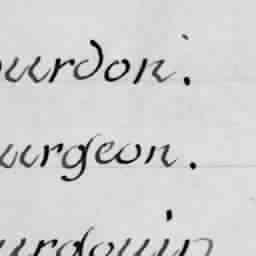 ourdon.
urgeon.
urdouin